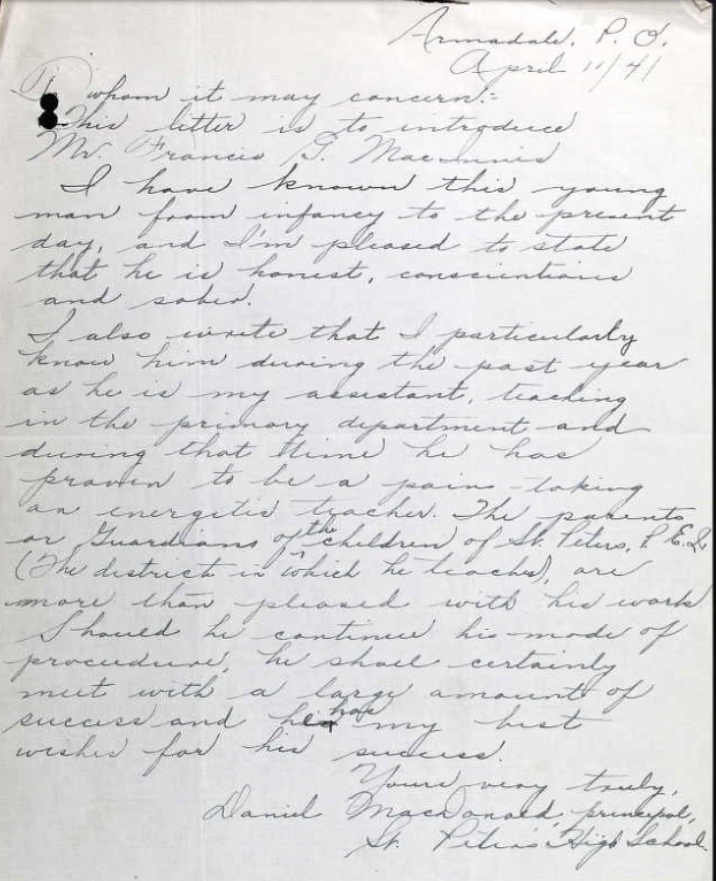 Armadale, P. O.
April 11/41
To whom it may concern:-
This letter is to introduce
Mr. Francis G. MacInnis
I have known this young
man from infancy to the present
day, and I'm pleased to state
that he is honest, conscientious
and sober.
I also write that I particularly
know him during the past year
as he is my assistant, teaching
in the primary department and
during that time he has
proven to be a pains-taking
an energetic teacher. The parents
or Guardians of the children of St. Peters, P. E. I.
(The district in which he teaches), are
more than pleased with his work.
Should he continue his mode of
proceedure, he shall certainly
meet with a large amount of
success and he has my best
wishes for his success.
Yours very truly,
Daniel MacDonald, principal,
St. Peter's High School.